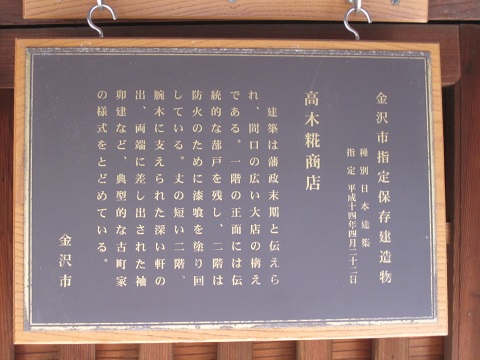 金沢市指定保存建造物
種別 日本建築
指定 平成十四年四月二十二日
高木糀商店
建築は藩政末期と伝えら
れ、間口の広い大店の構え
である。一階の正面には伝
統的な蔀戸を残し、二階は
防火のために漆喰を塗り回
している。丈の短い二階、
腕木に支えられた深い軒の
出、両端に差し出された袖
卯建など、典型的な古町家
の様式をとどめている。
金沢市